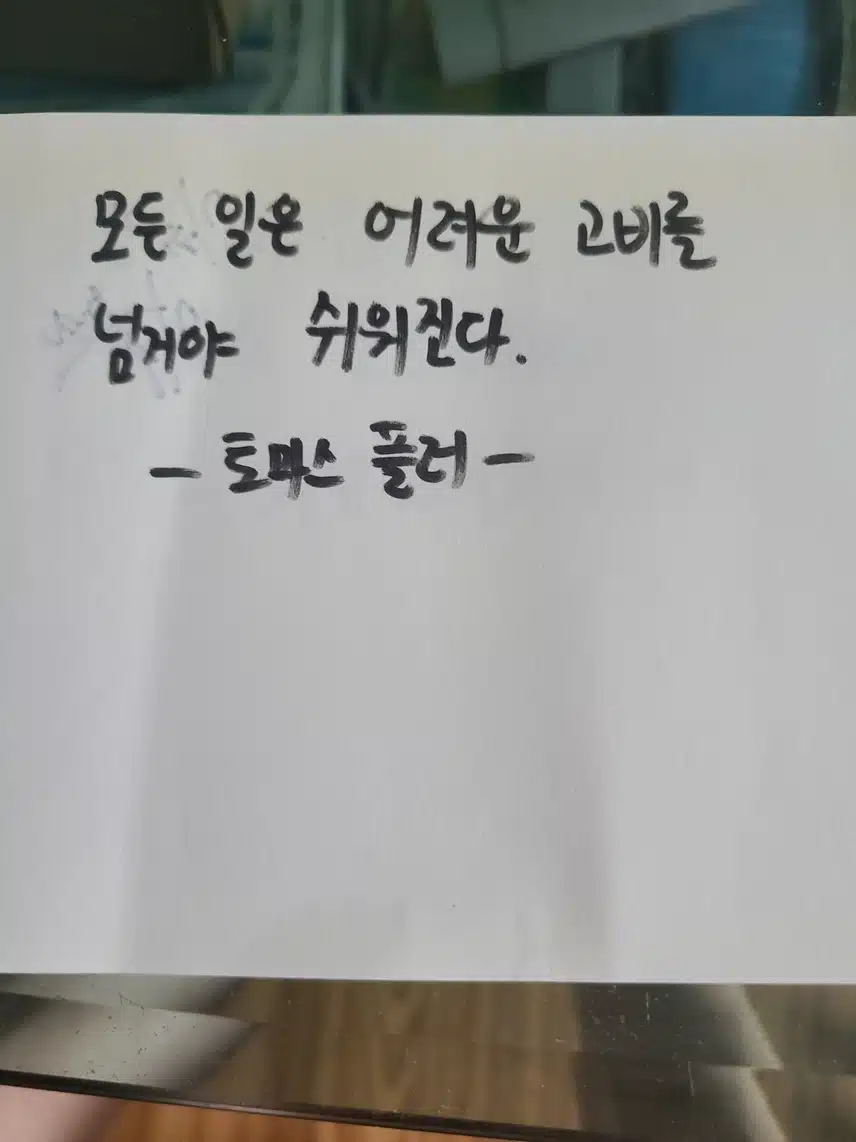 모든 일은 어려운 고비를
넘겨야 쉬워진다.
- 토마스 풀러 -